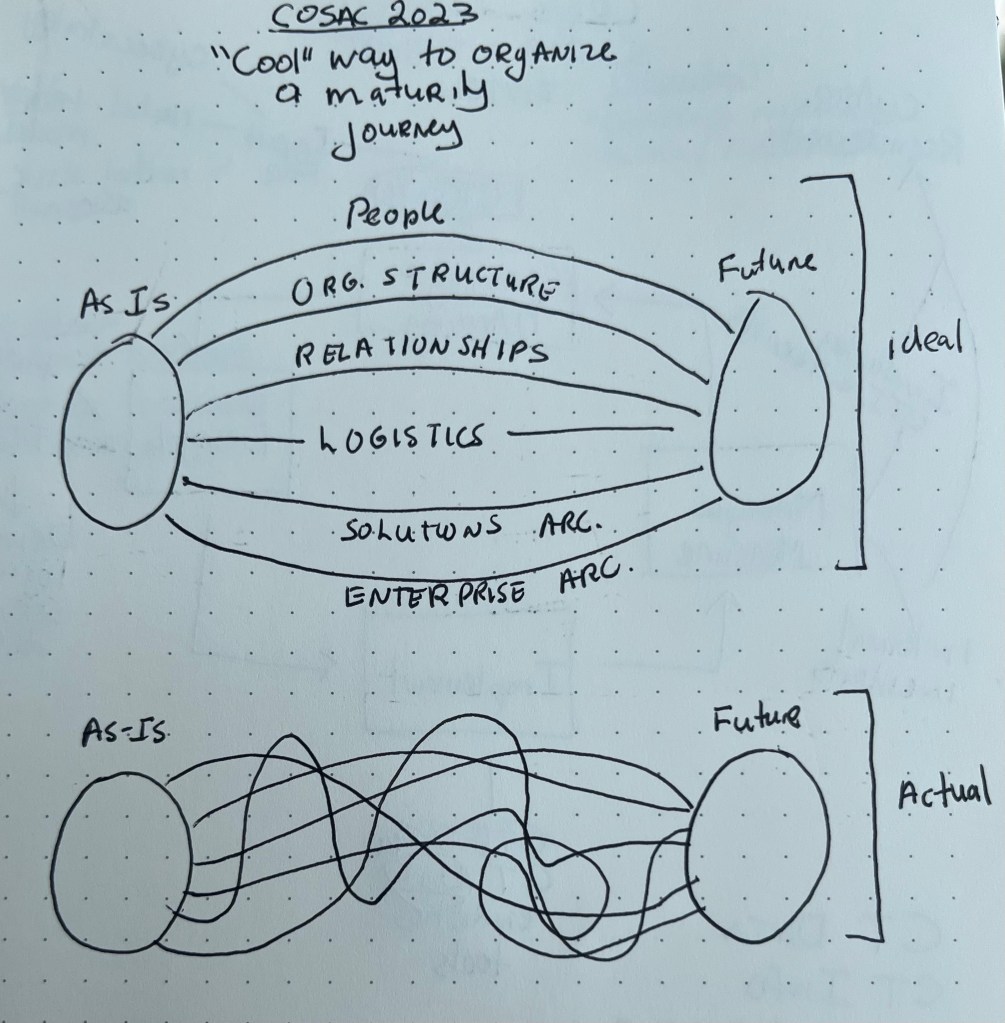 COSAC 2023
"Cool" way to ORgANIZE
a maturity
Journey
People
As Is
ORG. STRUCTURE
Future
RELATIONSHIPS
ideal
LOGISTICS
SOLUTIONS ARC.
ENTERPRISE ARC.
As-Is
Future
Actual